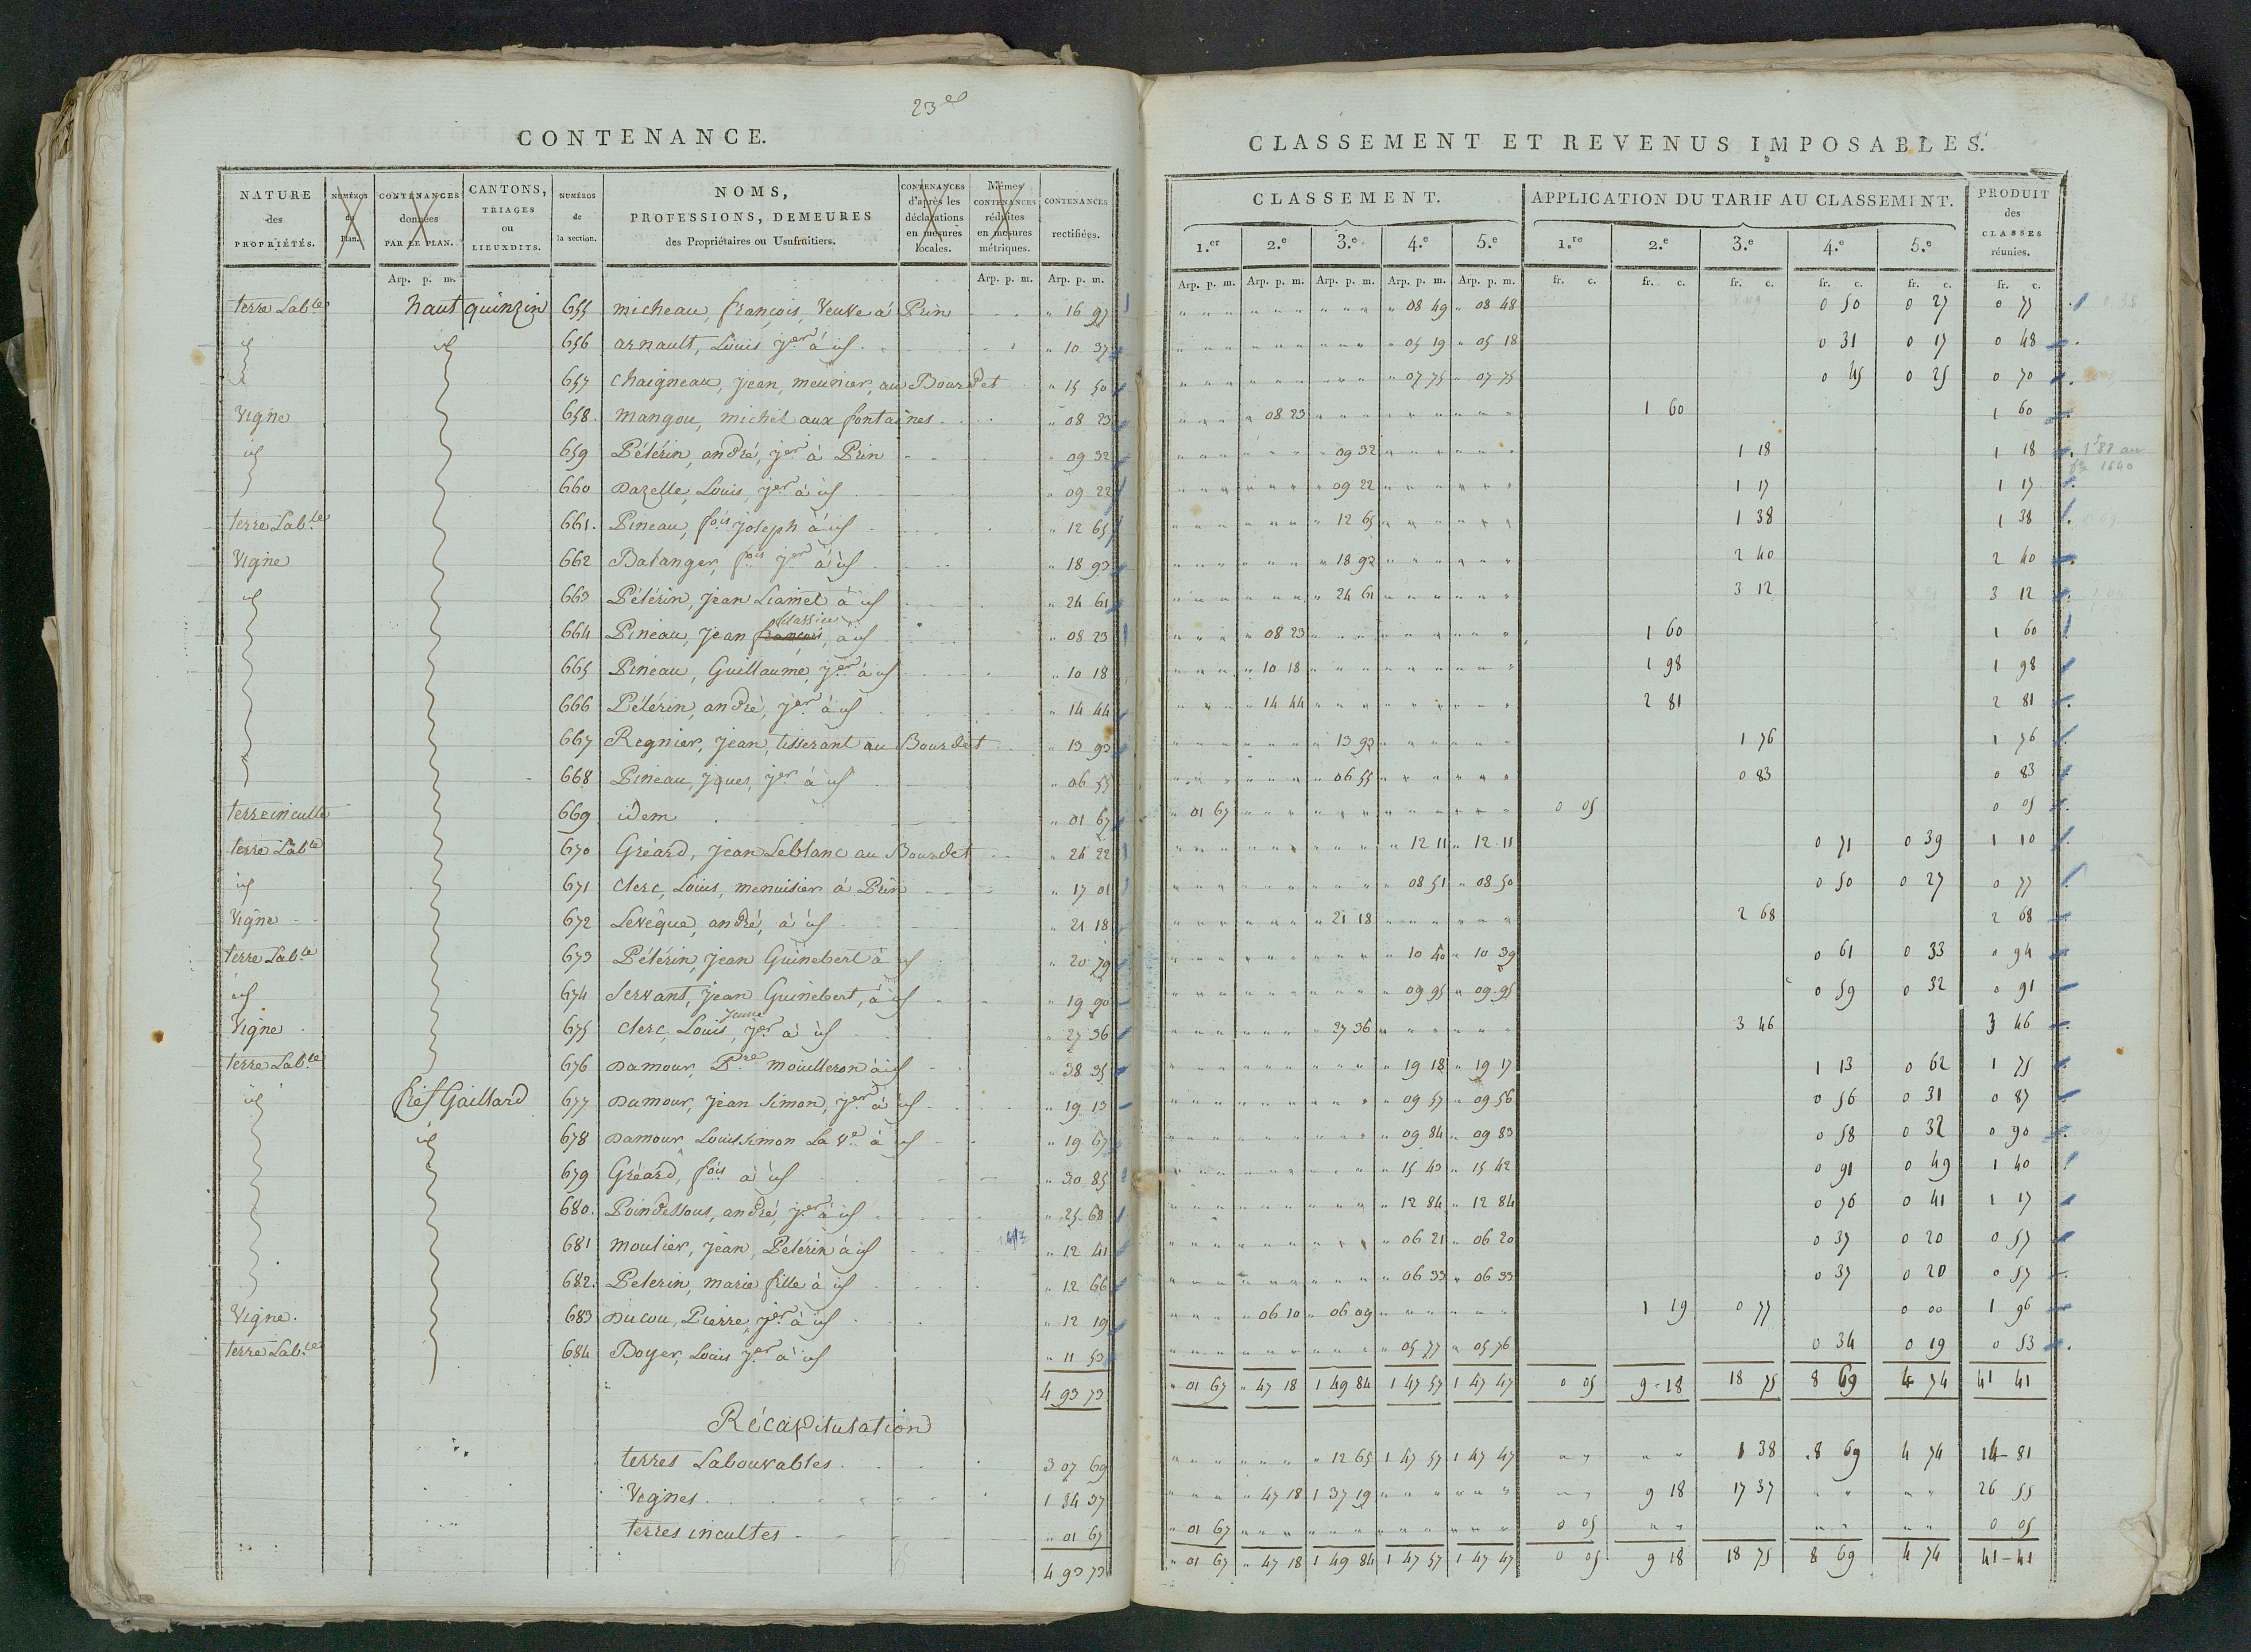 23e
CONTENANCE.
NATURE des PROPRIÉTÉS. | NUMÉROS du Plan. | CONTENANCES données PAR LE PLAN. | CANTONS, TRIAGES ou LIEUXDITS. | NUMÉROS de la section. | NOMS, PROFESSIONS, DEMEURES des Propriétaires ou Usufruitiers. | CONTENANCES d'après les déclarations en mesures locales. | Mêmes CONTENANCES réduites en mesures métriques. | CONTENANCES rectifiées.
Arp. p. m. | Arp. p. m. | Arp. p. m.
terre Lable haut quinzin 655 micheau, françois, Veuve à Prin " 16 97
id id 656 arnault, Louis jer à id " 10 37
657 Chaigneau, jean, meunier, au Bourdet " 15 50
Vigne 658. mangou, michel aux fontaines " 08 23
id 659 Pélérin, andré, jer à Prin " 09 32
660 Dazelle, Louis, jer à id " 09 22
terre Lable 661. Pineau, fois joseph à id " 12 65
Vigne 662 Balanger, fois jer à id " 18 93
id 663 Pélérin, jean Liamet à id " 24 61
664 Pineau, jean françois, à id " 08 23
665 Pineau, Guillaume, jer à id " 10 18
666 Pélérin, andré, jer à id " 14 44
667 Regnier, jean, tisserant au Bourdet " 13 93
668 Pineau, jques, jer à id " 06 55
terre inculte 669 idem " 01 67
terre Lable 670 Gréard, jean Leblanc au Bourdet " 24 22
id 671 Clerc, Louis, menuisier à Prin " 17 01
Vigne 672 Levêque, andré, à id " 21 18
terre Lable 673 Pélérin, jean Guinebert à id " 20 79
id 674 Servant, jean Guinebert, à id " 19 90
Vigne 675 Clerc, Louis, jeune jer à id " 27 36
terre Lable 676 Damour, Pre mouilleron à id " 38 35
id fief Gaillard 677 Damour, jean Simon, jer à id " 19 13
id 678 Damour Louis Simon La Ve à id " 19 67
679 Gréard, fois à id " 30 85
680. Poindessous, andré, jer à id " 25 68
681 moulier, jean, Pelérin à id " 12 41
682. Pelerin, marie fille à id " 12 66
Vigne. 683 Ducou, Pierre, jer à id " 12 19
terre Lable 684 Boyer, Louis jer à id " 11 53
4 93 73
Récapitulation
terres Labourables 3 07 69
Vignes 1 84 37
terres incultes " 01 67
4 93 73
CLASSEMENT ET REVENUS IMPOSABLES.
CLASSEMENT. | APPLICATION DU TARIF AU CLASSEMENT. | PRODUIT des CLASSES réunies.
1.er | 2.e | 3.e | 4.e | 5.e | 1.re | 2.e | 3.e | 4.e | 5.e
Arp. p. m. | Arp. p. m. | Arp. p. m. | Arp. p. m. | Arp. p. m. | fr. c. | fr. c. | fr. c. | fr. c. | fr. c. | fr. c.
" 08 49 " 08 48 0 50 0 27 0 77
" 05 19 " 05 18 0 31 0 17 0 48
" 07 75 " 07 75 0 45 0 25 0 70
" 08 23 1 60 1 60
" 09 32 1 18 1 18
" 09 22 1 17 1 17
" 12 65 1 38 1 38
" 18 93 2 40 2 40
" 24 61 3 12 3 12
" 08 23 1 60 1 60
" 10 18 1 98 1 98
" 14 44 2 81 2 81
" 13 93 1 76 1 76
" 06 55 0 83 0 83
" 01 67 0 05 0 05
" 12 11 " 12 11 0 71 0 39 1 10
" 08 51 " 08 50 0 50 0 27 0 77
" 21 18 2 68 2 68
" 10 40 " 10 39 0 61 0 33 0 94
" 09 95 " 09 95 0 59 0 32 0 91
" 27 36 3 46 3 46
" 19 18 " 19 17 1 13 0 62 1 75
" 09 57 " 09 56 0 56 0 31 0 87
" 09 84 " 09 83 0 58 0 32 0 90
" 15 43 " 15 42 0 91 0 49 1 40
" 12 84 " 12 84 0 76 0 41 1 17
" 06 21 " 06 20 0 37 0 20 0 57
" 06 33 " 06 33 0 37 0 20 0 57
" 06 10 " 06 09 1 19 0 77 0 00 1 96
" 05 77 " 05 76 0 34 0 19 0 53
" 01 67 " 47 18 1 49 84 1 47 57 1 47 47 0 05 9 18 18 75 8 69 4 74 41 41
" 12 65 1 47 57 1 47 47 1 38 8 69 4 74 14 81
" 47 18 1 37 19 9 18 17 37 26 55
" 01 67 0 05 0 05
" 01 67 " 47 18 1 49 84 1 47 57 1 47 47 0 05 9 18 18 75 8 69 4 74 41 41